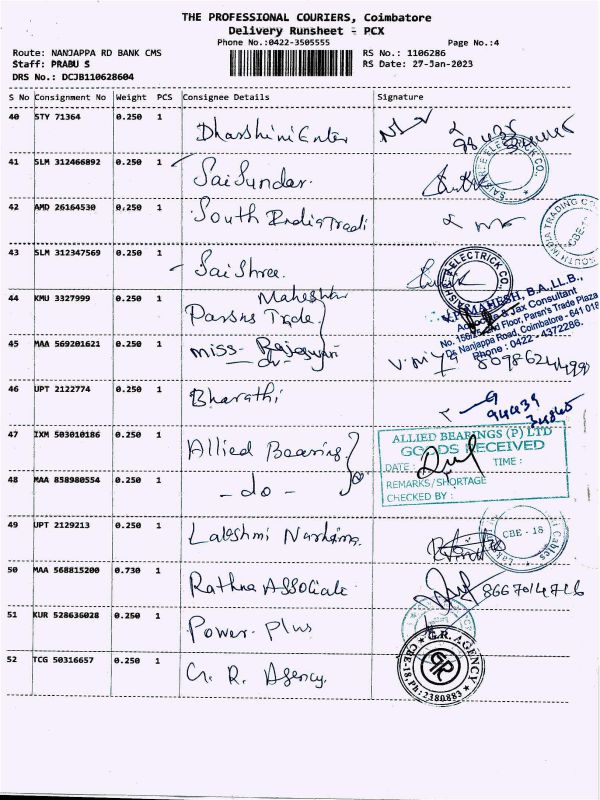 THE PROFESSIONAL COURIERS, Coimbatore
Delivery Runsheet - PCX
Phone No.:0422-3505555
Page No.:4
Route: NANJAPPA RD BANK CMS
RS No.: 1106286
Staff: PRABU S
RS Date: 27-Jan-2023
DRS No.: DCJB110628604
S No Consignment No Weight PCS Consignee Details Signature
40 STY 71364 0.250 1 Dharshini Enter
41 SLM 312466892 0.250 1 Sai Sundar.
SAISHREE ELECTRICK CO.
42 AMD 26164530 0.250 1 South India Tradi
SOUTH INDIA TRADING CO
CBE-
43 SLM 312347569 0.250 1 Sai Shree.
SAISHREE ELECTRICK CO.
44 KMU 3327999 0.250 1 Maheshwar
Parsns Trade
V.P. MAHESH, B.A.,LL.B.,
Advocate & Tax Consultant
No. 156 2nd Floor, Parsn's Trade Plaza
Dr. Nanjappa Road, Coimbatore - 641 018
Phone : 0422 - 4372286.
45 MAA 569201621 0.250 1 miss. Rajeswari
- do -
8098624499
46 UPT 2122774 0.250 1 Bharathi
47 IXM 503010186 0.250 1 Allied Bearing
ALLIED BEARINGS (P) LTD
GOODS RECEIVED
DATE : TIME :
48 MAA 858980554 0.250 1 - do -
REMARKS/SHORTAGE
CHECKED BY :
49 UPT 2129213 0.250 1 Lakshmi Narshima.
CBE - 18
Cables
50 MAA 568815200 0.730 1 Rathna Associate.
51 KUR 528636028 0.250 1 Power. Plus
52 TCG 50316657 0.250 1 G. R. Agency.
G.R. AGENCY
GR
CBE-18, Ph: 2380883